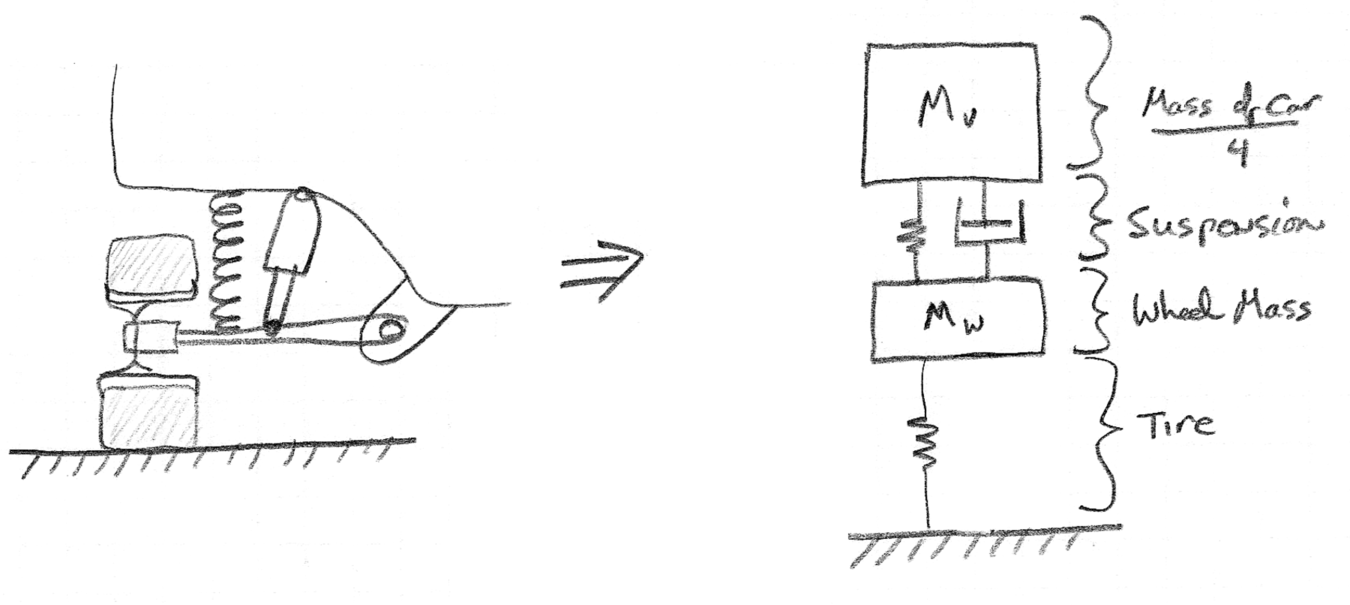 Mv
Mass of Car
4
Suspension
Mw
Wheel Mass
Tire